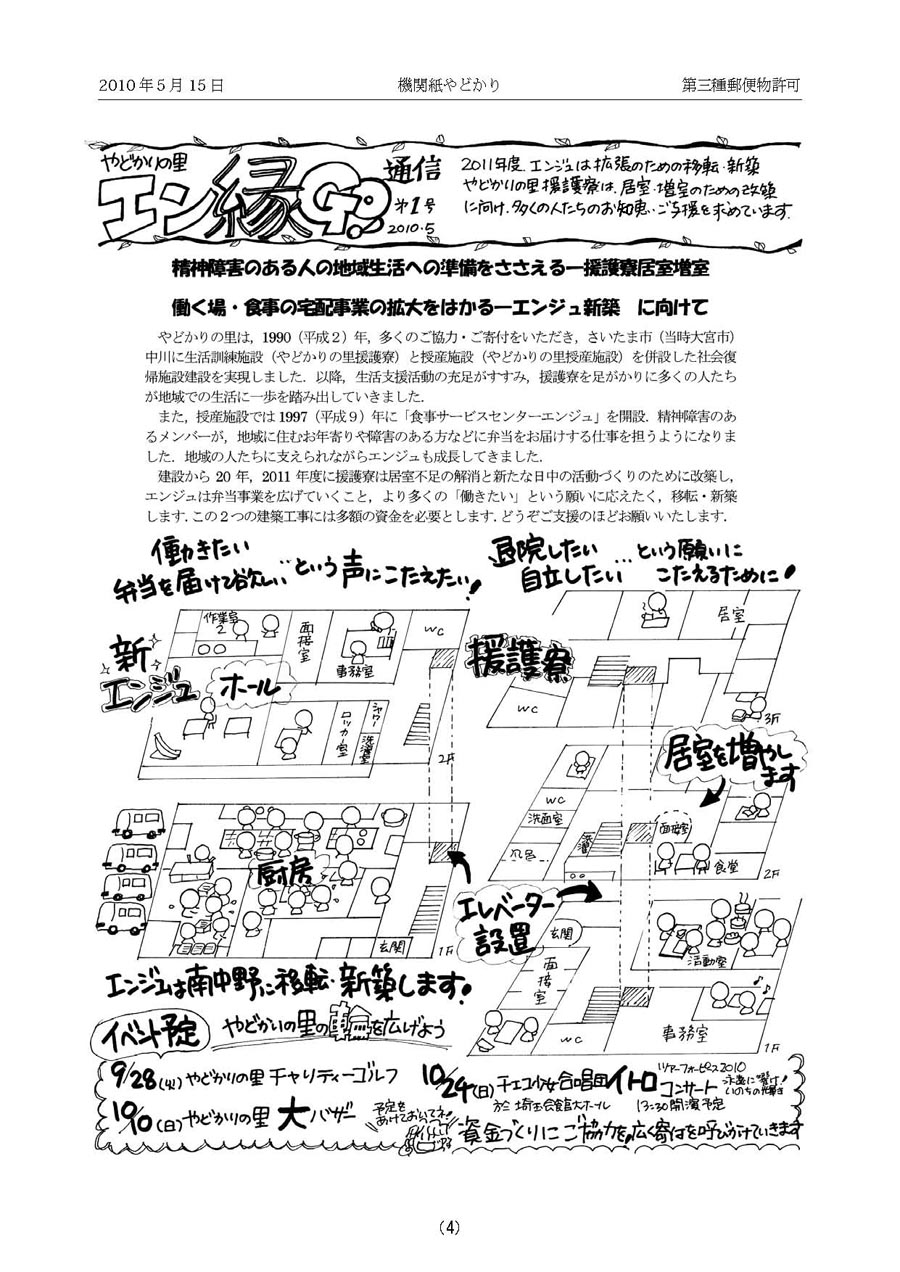 2010年5月15日
機関紙やどかり
第三種郵便物許可
やどかりの里
エン縁Go!
通信
第1号
2010・5
2011年度、エンジュは拡張のための移転・新築
やどかりの里援護寮は、居室・増室のための改築
に向け、多くの人たちのお知恵・ご支援を求めています。
精神障害のある人の地域生活への準備をささえる―援護寮居室増室
働く場・食事の宅配事業の拡大をはかる―エンジュ新築 に向けて
やどかりの里は，1990（平成2）年，多くのご協力・ご寄付をいただき，さいたま市（当時大宮市）
中川に生活訓練施設（やどかりの里援護寮）と授産施設（やどかりの里授産施設）を併設した社会復
帰施設建設を実現しました．以降，生活支援活動の充足がすすみ，援護寮を足がかりに多くの人たち
が地域での生活に一歩を踏み出していきました．
また，授産施設では1997（平成9）年に「食事サービスセンターエンジュ」を開設．精神障害のあ
るメンバーが，地域に住むお年寄りや障害のある方などに弁当をお届けする仕事を担うようになりま
した．地域の人たちに支えられながらエンジュも成長してきました．
建設から20年，2011年度に援護寮は居室不足の解消と新たな日中の活動づくりのために改築し，
エンジュは弁当事業を広げていくこと，より多くの「働きたい」という願いに応えたく，移転・新築
します．この2つの建築工事には多額の資金を必要とします．どうぞご支援のほどお願いいたします．
働きたい
弁当を届けて欲しい…という声にこたえたい！
退院したい
自立したい…という願いに
こたえるために！
新エンジュ
作業室2
面接室
事務室
WC
ホール
ロッカー室
シャワー
洗濯室
2F
厨房
玄関
1F
エンジュは南中野に移転・新築します！
援護寮
居室
WC
3F
居室を増やします
WC
洗面室
風呂
洗濯
面接室
食堂
2F
エレベーター設置
玄関
面接室
WC
活動室
事務室
1F
イベント予定
やどかりの里の
を広げよう
9/28(火)やどかりの里 チャリティーゴルフ
10/10(日)やどかりの里 大バザー
予定をあけておいてネ！
10/24(日)チェコ少女合唱団イトロ コンサート
ツアーフォーピース2010
永遠に響け！いのちの輝き
於 埼玉会館大ホール
13:30開演予定
資金づくりにご協力を。広く寄付を呼びかけていきます
(4)